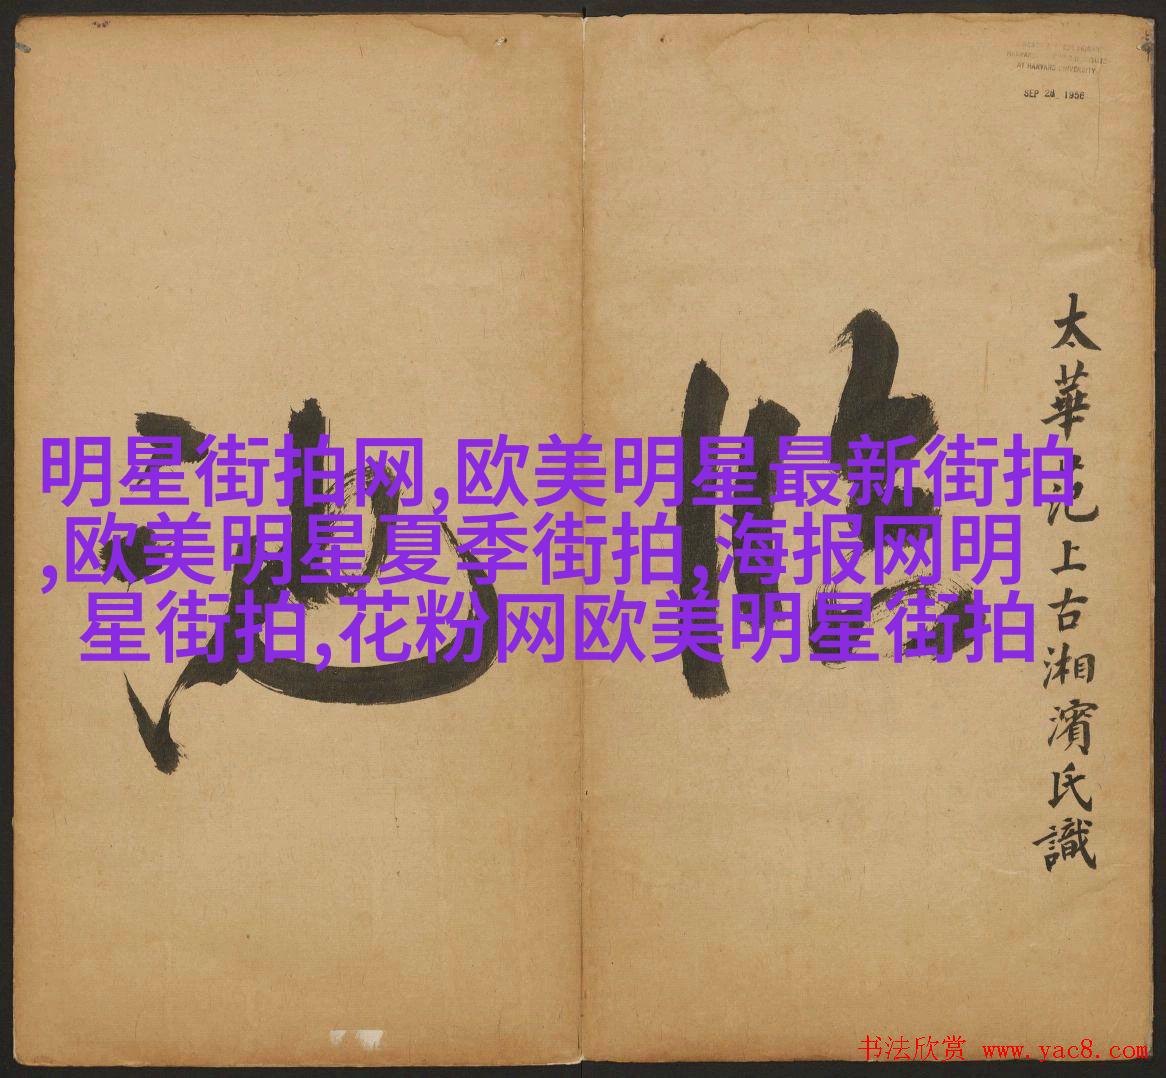 AT HARVARD UNIVERSITY
SEP 28 1956
明星街拍网,欧美明星最新街拍
,欧美明星夏季街拍,海报网明
星街拍,花粉网欧美明星街拍
太華范上古湘濱氏識
书法欣赏 www.yac8.com